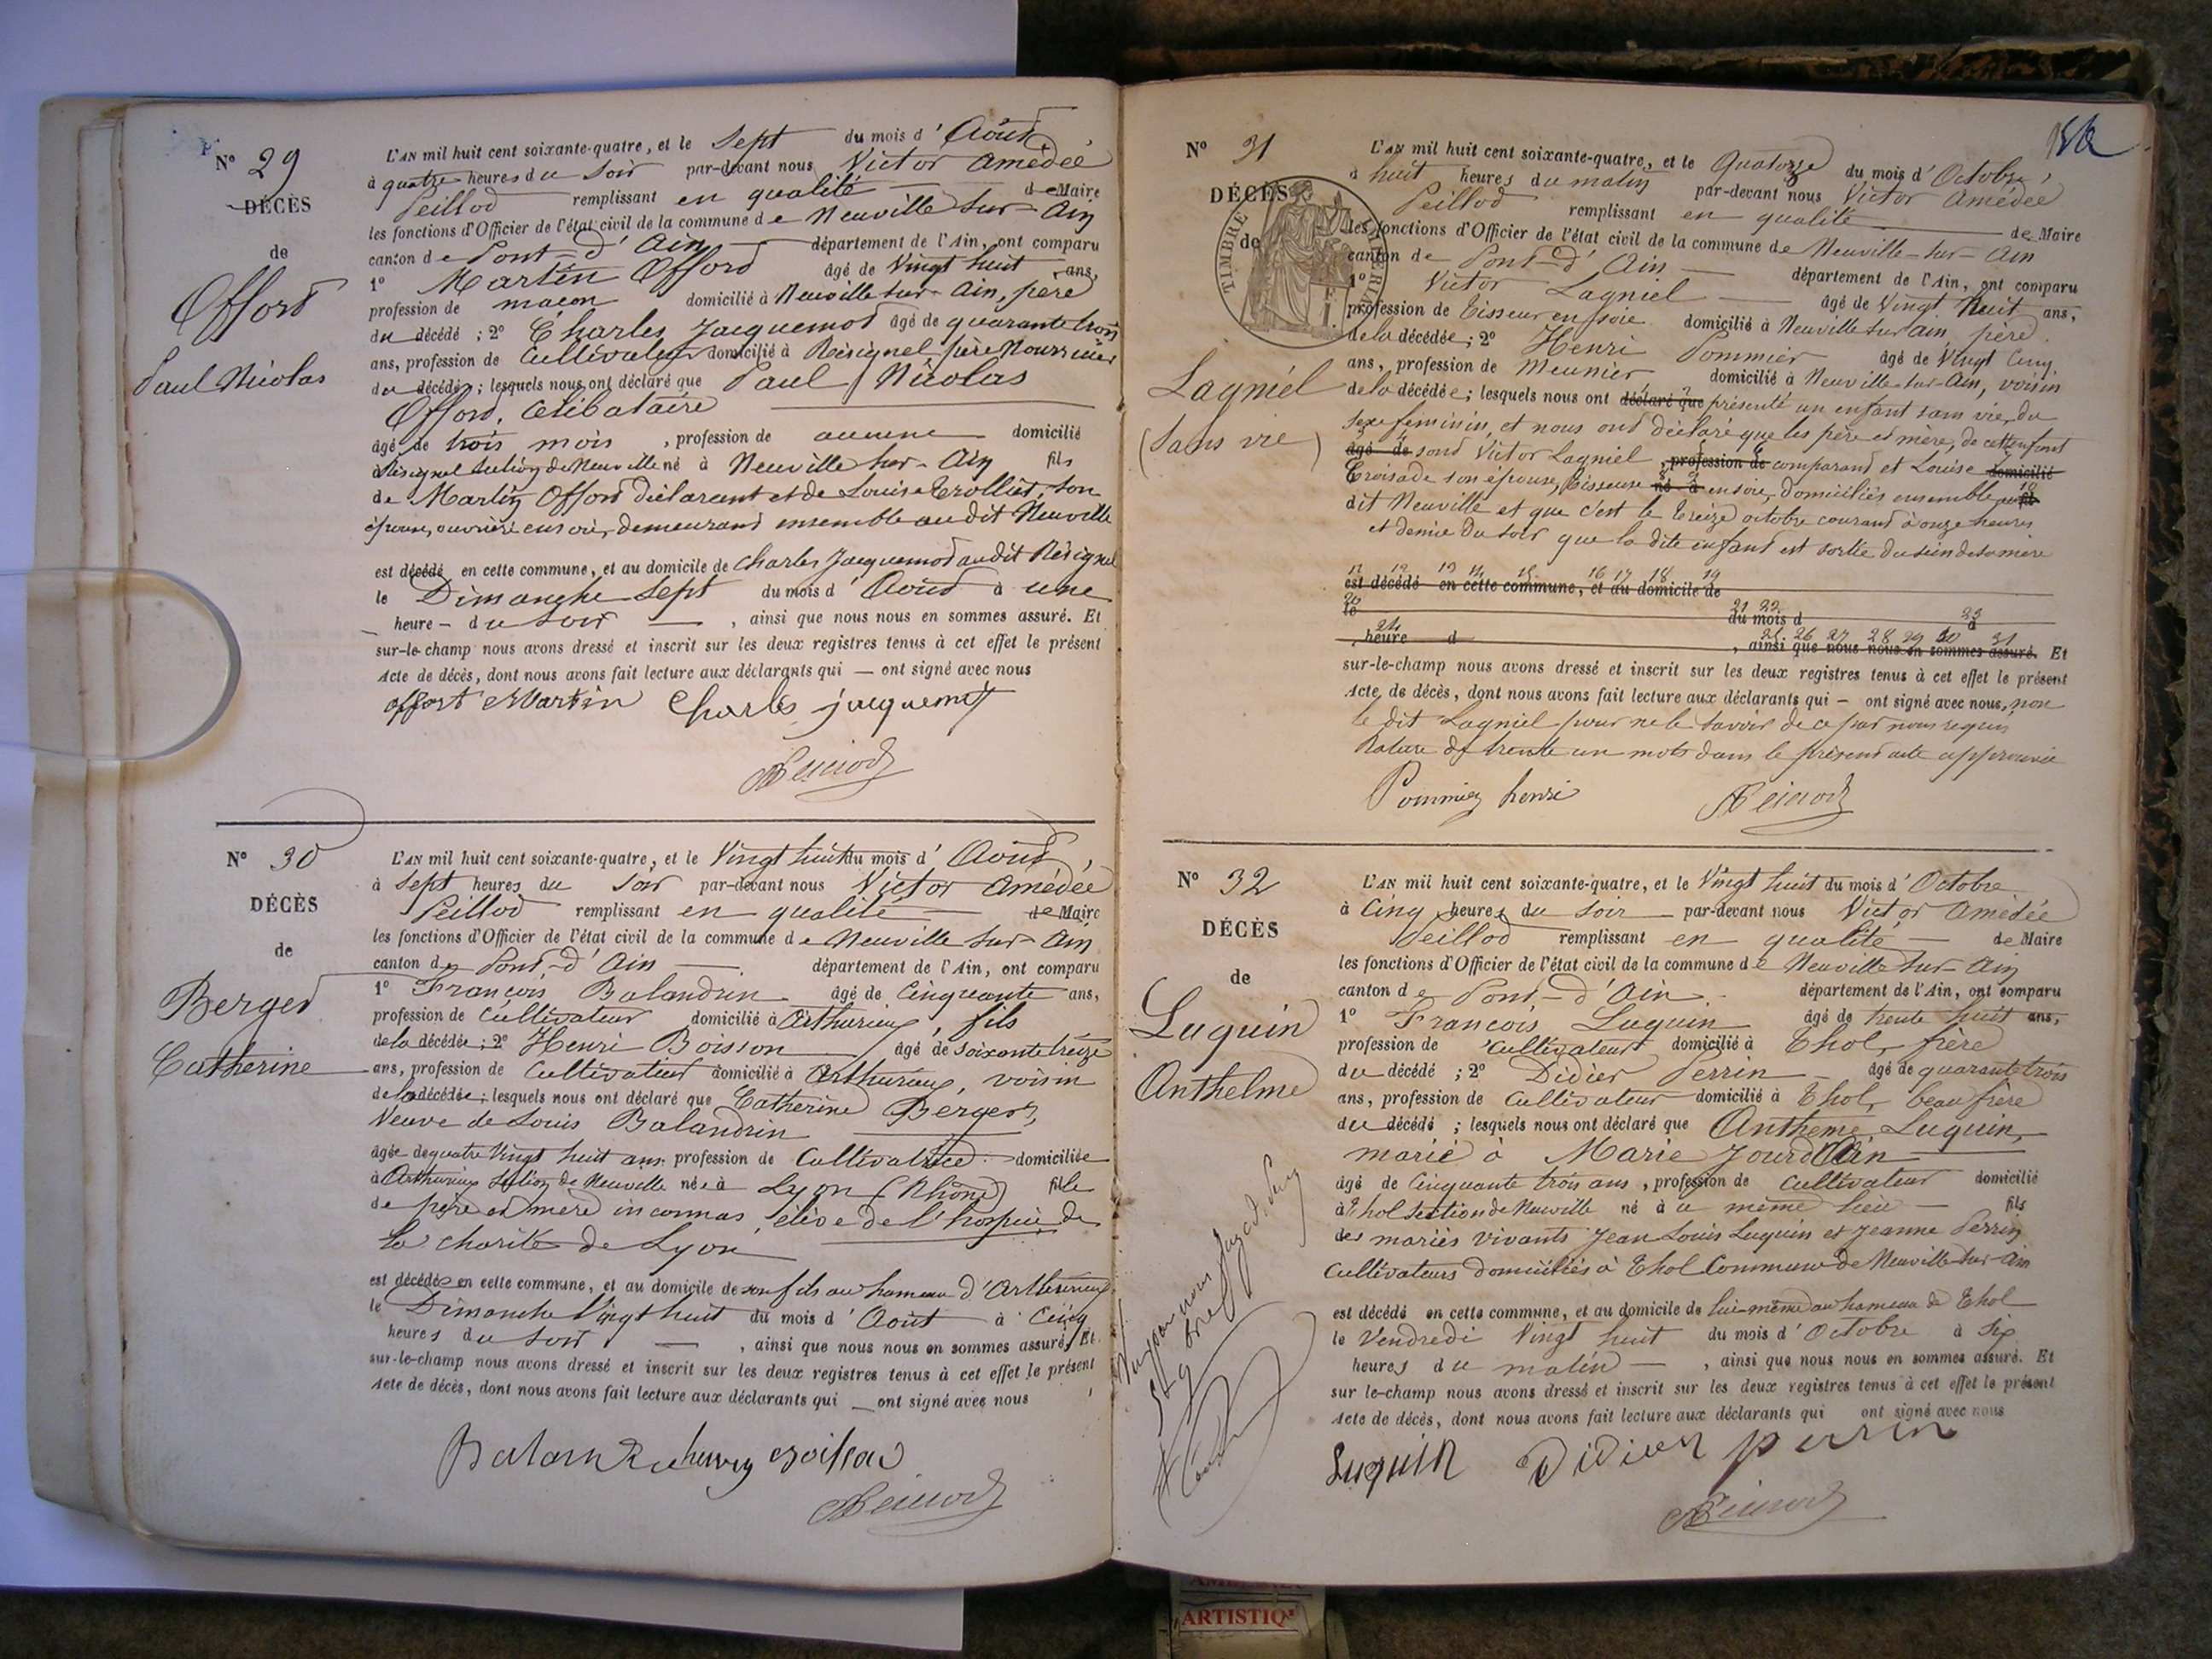 N° 29
DÉCÈS
de
Offord
Paul Nicolas
L'AN mil huit cent soixante-quatre, et le Sept du mois d' Août
à quatre heures du soir par-devant nous Victor Amédée
Peillod remplissant en qualité de Maire
les fonctions d'Officier de l'état civil de la commune de Neuville sur-Ain
canton de Pont-d'Ain département de l'Ain, ont comparu
1° Martin Offord âgé de Vingt huit ans,
profession de maçon domicilié à Neuville sur-Ain, père
du décédé ; 2° Charles Jacquemod âgé de quarante trois
ans, profession de Cultivateur domicilié à Résignel, père Nourricier
du décédé ; lesquels nous ont déclaré que Paul Nicolas
Offord, célibataire
âgé de trois mois , profession de aucune domicilié
à Résignel section de Neuville né à Neuville sur-Ain fils
de Martin Offord déclarant et de Louise Trolliet, son
épouse, ouvrière en soie, demeurant ensemble au dit Neuville
est décédé en cette commune, et au domicile de Charles Jacquemod au dit Résignel
le Dimanche Sept du mois d' Août à une
heure - du soir , ainsi que nous nous en sommes assuré. Et
sur-le-champ nous avons dressé et inscrit sur les deux registres tenus à cet effet le présent
Acte de décès, dont nous avons fait lecture aux déclarants qui — ont signé avec nous
offort Martin Charles jacquemot
Peillod
N° 30
DÉCÈS
de
Berger
Catherine
L'AN mil huit cent soixante-quatre, et le Vingt huit du mois d' Août
à Sept heures du soir par-devant nous Victor Amédée
Peillod remplissant en qualité de Maire
les fonctions d'Officier de l'état civil de la commune de Neuville sur-Ain
canton de Pont-d'Ain département de l'Ain, ont comparu
1° François Balandrin âgé de Cinquante ans,
profession de Cultivateur domicilié à Arthurieux, fils
de la décédée ; 2° Henri Boisson âgé de soixante treize
ans, profession de Cultivateur domicilié à Arthurieux, voisin
de la décédée ; lesquels nous ont déclaré que Catherine Berger,
Veuve de Louis Balandrin
âgée de quatre Vingt huit ans profession de Cultivatrice domiciliée
à Arthurieux section de Neuville née à Lyon (Rhône) fille
de père et mère inconnus élève de l'hospice de
la charité de Lyon
est décédée en cette commune, et au domicile de son fils au hameau d'Arthurieux
le Dimanche Vingt huit du mois d' Août à Cinq
heures du soir — , ainsi que nous nous en sommes assuré. Et
sur-le-champ nous avons dressé et inscrit sur les deux registres tenus à cet effet le présent
Acte de décès, dont nous avons fait lecture aux déclarants qui — ont signé avec nous
henry
Peillod
N° 31
DÉCÈS
de
TIMBRE
Lagniel
(Sans vie)
L'AN mil huit cent soixante-quatre, et le Quatorze du mois d' Octobre,
à huit heures du matin par-devant nous Victor Amédée
Peillod remplissant en qualité de Maire
les fonctions d'Officier de l'état civil de la commune de Neuville-sur-Ain
canton de Pont-d'Ain département de l'Ain, ont comparu
1° Victor Lagniel âgé de Vingt huit ans,
profession de Tisseur en soie domicilié à Neuville sur ain, père
de la décédée ; 2° Henri Pommier âgé de Vingt Cinq
ans, profession de Meunier domicilié à Neuville-sur-Ain, voisin
de la décédée ; lesquels nous ont déclaré que présenté un enfant sans vie, du
sexe féminin, et nous ont déclaré que les père et mère, de cet enfant
âgé de sont Victor Lagniel , profession de comparant et Louise domicilié
Croisade son épouse, Tisseuse né à en soie, domiciliés ensemble au fils
dit Neuville et que c'est le treize octobre courant à onze heures
et demie du soir que la dite enfant est sortie du sein de sa mère
11 12 13 14 15 16 17 18 19
est décédé en cette commune, et au domicile de
20 21 22 23
le du mois d à
24 25 26 27 28 29 30 31
heure d , ainsi que nous nous en sommes assuré. Et
sur-le-champ nous avons dressé et inscrit sur les deux registres tenus à cet effet le présent
Acte de décès, dont nous avons fait lecture aux déclarants qui — ont signé avec nous, non
le dit Lagniel pour ne le savoir de ce par nous requis
Rature de trente un mots dans le présent acte approuvée
Pommier henri Peillod
N° 32
DÉCÈS
de
Luguin
Anthelme
L'AN mil huit cent soixante-quatre, et le Vingt huit du mois d' Octobre
à Cinq heures du soir par-devant nous Victor Amédée
Peillod remplissant en qualité — de Maire
les fonctions d'Officier de l'état civil de la commune de Neuville sur-Ain
canton de Pont-d'Ain département de l'Ain, ont comparu
1° François Luguin âgé de trente huit ans,
profession de Cultivateur domicilié à Thol, frère
du décédé ; 2° Didier Perrin âgé de quarante trois
ans, profession de Cultivateur domicilié à Thol, beau frère
du décédé ; lesquels nous ont déclaré que Antheme Luguin,
marié à Marie Jourdain
âgé de Cinquante trois ans , profession de Cultivateur domicilié
à Thol section de Neuville né à ce même lieu — fils
des mariés vivants Jean Louis Luguin et Jeanne Perrin
Cultivateurs domiciliés à Thol Commune de Neuville-sur-Ain
est décédé en cette commune, et au domicile de lui-même au hameau de Thol
le Vendredi Vingt huit du mois d' Octobre à Six
heures du matin — , ainsi que nous nous en sommes assuré. Et
sur le-champ nous avons dressé et inscrit sur les deux registres tenus à cet effet le présent
Acte de décès, dont nous avons fait lecture aux déclarants qui ont signé avec nous
Luguin Didier perrin
Peillod
ARTISTIQ